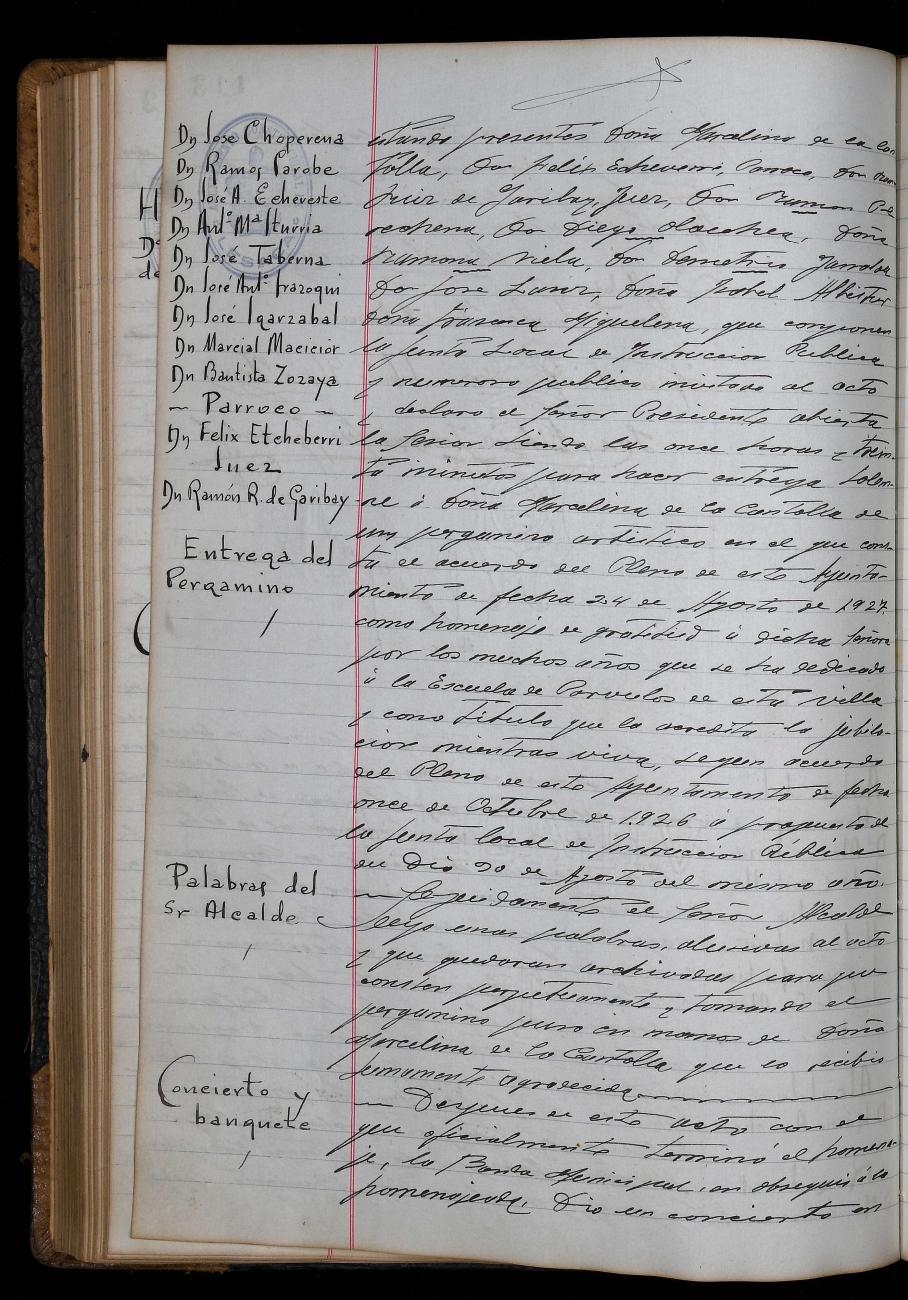 Dn Jose Choperena
Dn Ramos Parobe
Dn José A. Echeveste
Dn Antº Mª Iturria
Dn José Taberna
Dn José Antº Irazoqui
Dn José Igarzabal
Dn Marcial Macicior
Dn Bautista Zozaya
— Parroco —
Dn Felix Etcheberri
Juez
Dn Ramón R. de Garibay
Entrega del
Pergamino
Palabras del
Sr Alcalde
Concierto y
banquete
estando presentes Doña Marcelina de la Can
tolla, Don Felix Echeverri, Parroco, Don Ram
Ruiz de Garibay, Juez, Don Ramon
Don Diego Olaechea, Doña
Ramona Viela, Don Demetrio
Don Jose Sanz, Doña Isabel Albistur
Doña Francisca Miguelena, que componen
la Junta Local de Instruccion Publica
y numeroso publico invitado al acto
y declaro el Señor Presidente abierta
la sesion siendo las once horas y trein-
ta minutos para hacer entrega solem-
ne á Doña Marcelina de la Cantolla de
un pergamino artistico en el que cons-
ta el acuerdo del Pleno de este Ayunta-
miento de fecha 24 de Agosto de 1927.
como homenaje de gratitud á dicha Señora
por los muchos años que se ha dedicado
á la Escuela de Parvulos de esta villa
y como titulo que la acredita la jubila-
cion mientras viva, segun acuerdo
del Pleno de este Ayuntamiento de fecha
once de Octubre de 1926 á propuesta de
la Junta local de Instruccion Pública
del Dia 20 de Agosto del mismo año.
— Seguidamente el Señor Alcalde
leyo unas palabras, alusivas al acto
y que quedaran archivadas para que
consten perpetuamente y tomando el
pergamino puso en manos de Doña
Marcelina de la Cantolla que lo recibio
sumamente agradecida
— Despues de este acto con el
que oficialmente terminó el homena-
je, la Banda Municipal, en obsequio á la
homenajeada, dio un concierto en